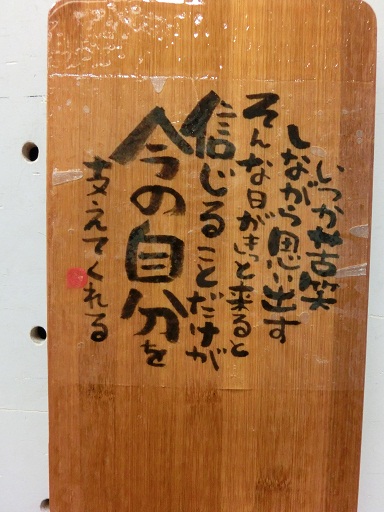 いつか苦笑
しながら思い出す
そんな日がきっと来ると
信じることだけが
今の自分を
支えてくれる